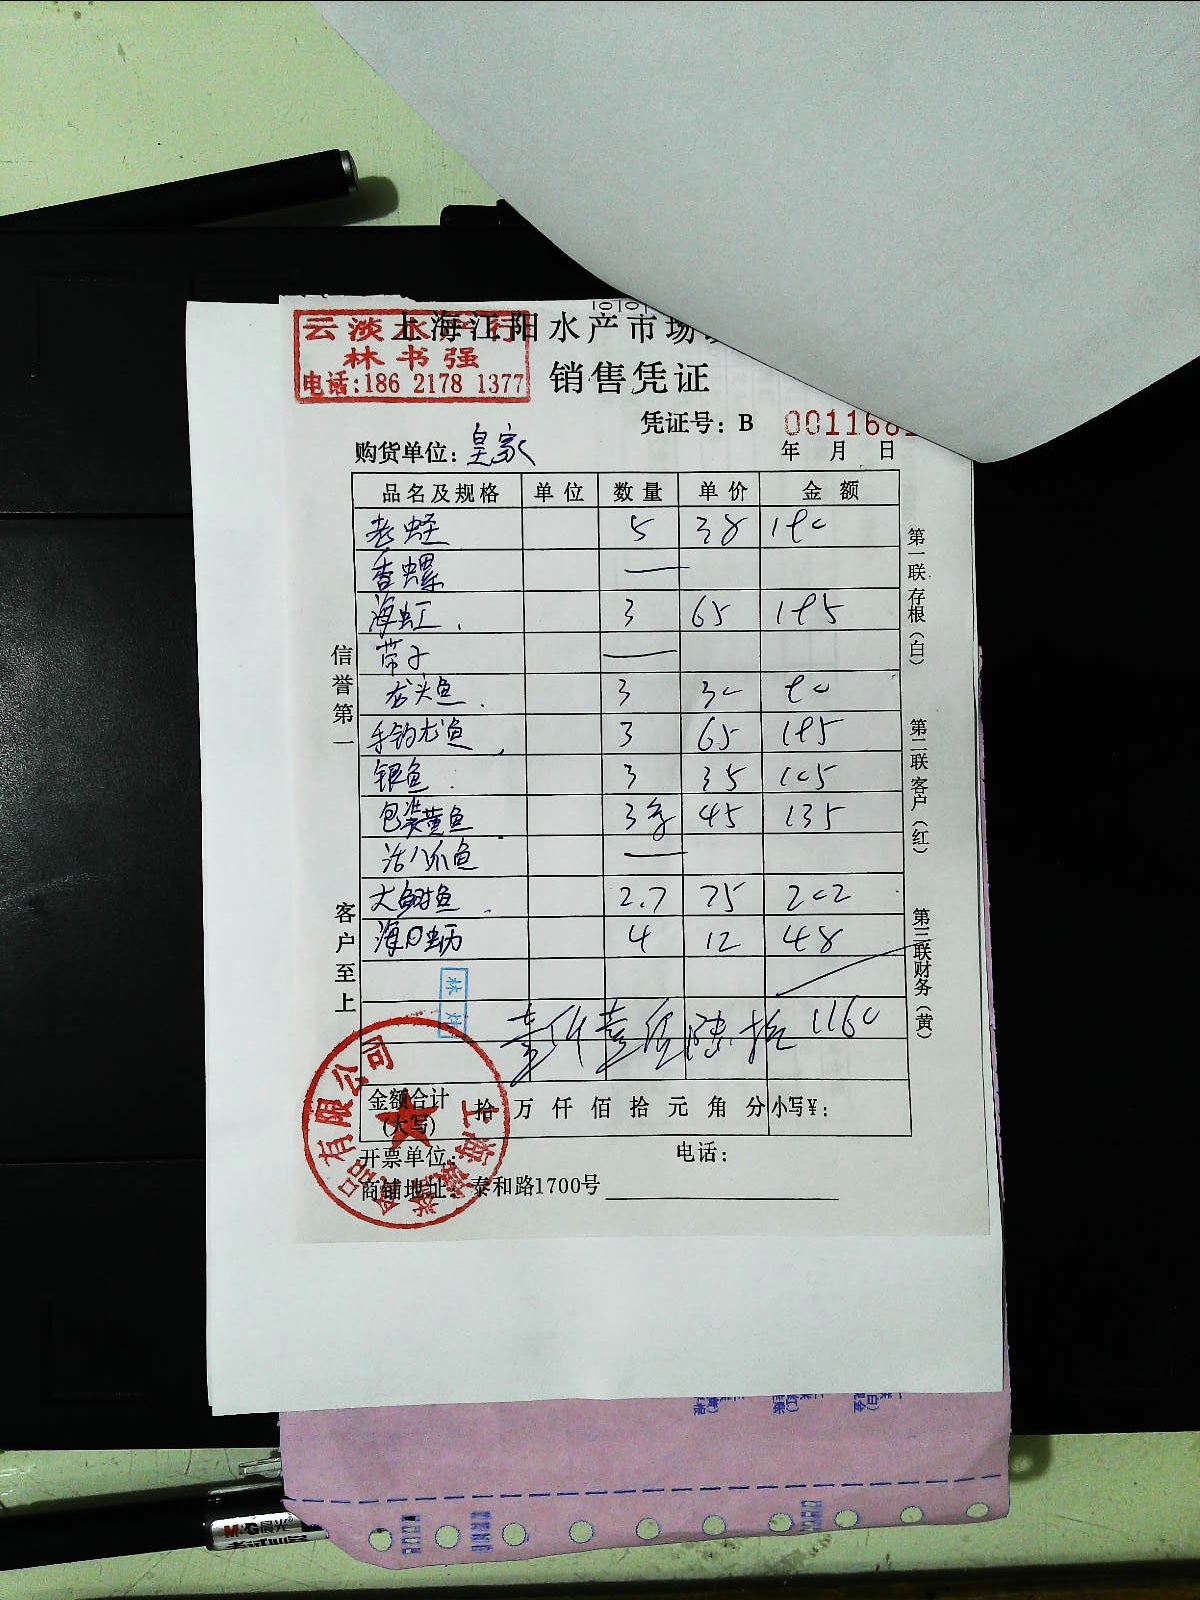 上海江阳水产市场
云淡水产行
林书强
电话:186 2178 1377
销售凭证
凭证号: B 001168
购货单位: 皇家 年 月 日
品名及规格 单位 数量 单价 金额
老蛏 5 38 190
香螺 —
海虹 3 65 195
带子 —
龙头鱼 3 30 90
手钓尤鱼 3 65 195
银鱼 3 35 105
包装黄鱼 3条 45 135
活八爪鱼 —
大鲥鱼 2.7 75 202
海口蛎 4 12 48
壹仟壹佰陆拾 1160
金额合计(大写) 拾 万 仟 佰 拾 元 角 分 小写¥:
开票单位: 电话:
商铺地址: 泰和路1700号
信誉第一
客户至上
第一联 存根(白)
第二联 客户(红)
第三联 财务(黄)
M&G晨光